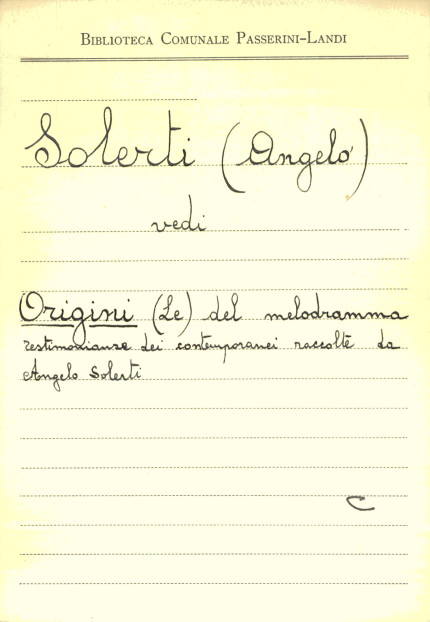 BIBLIOTECA COMUNALE PASSERINI-LANDI
Solerti (Angelo)
vedi
Origini (Le) del melodramma
testimonianze dei contemporanei raccolte da
Angelo Solerti
C